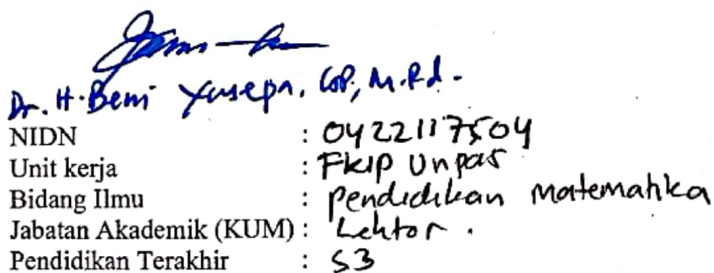 Dr. H. Beni Yusepa, G.P, M.Pd.
NIDN : 0422117504
Unit kerja : FKIP Unpas
Bidang Ilmu : Pendidikan Matematika
Jabatan Akademik (KUM) : Lektor.
Pendidikan Terakhir : S3